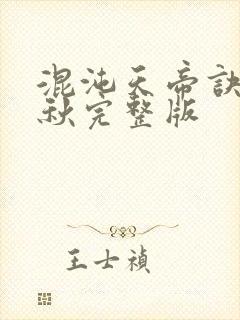 混沌天帝訣
秋完整版
王士禎